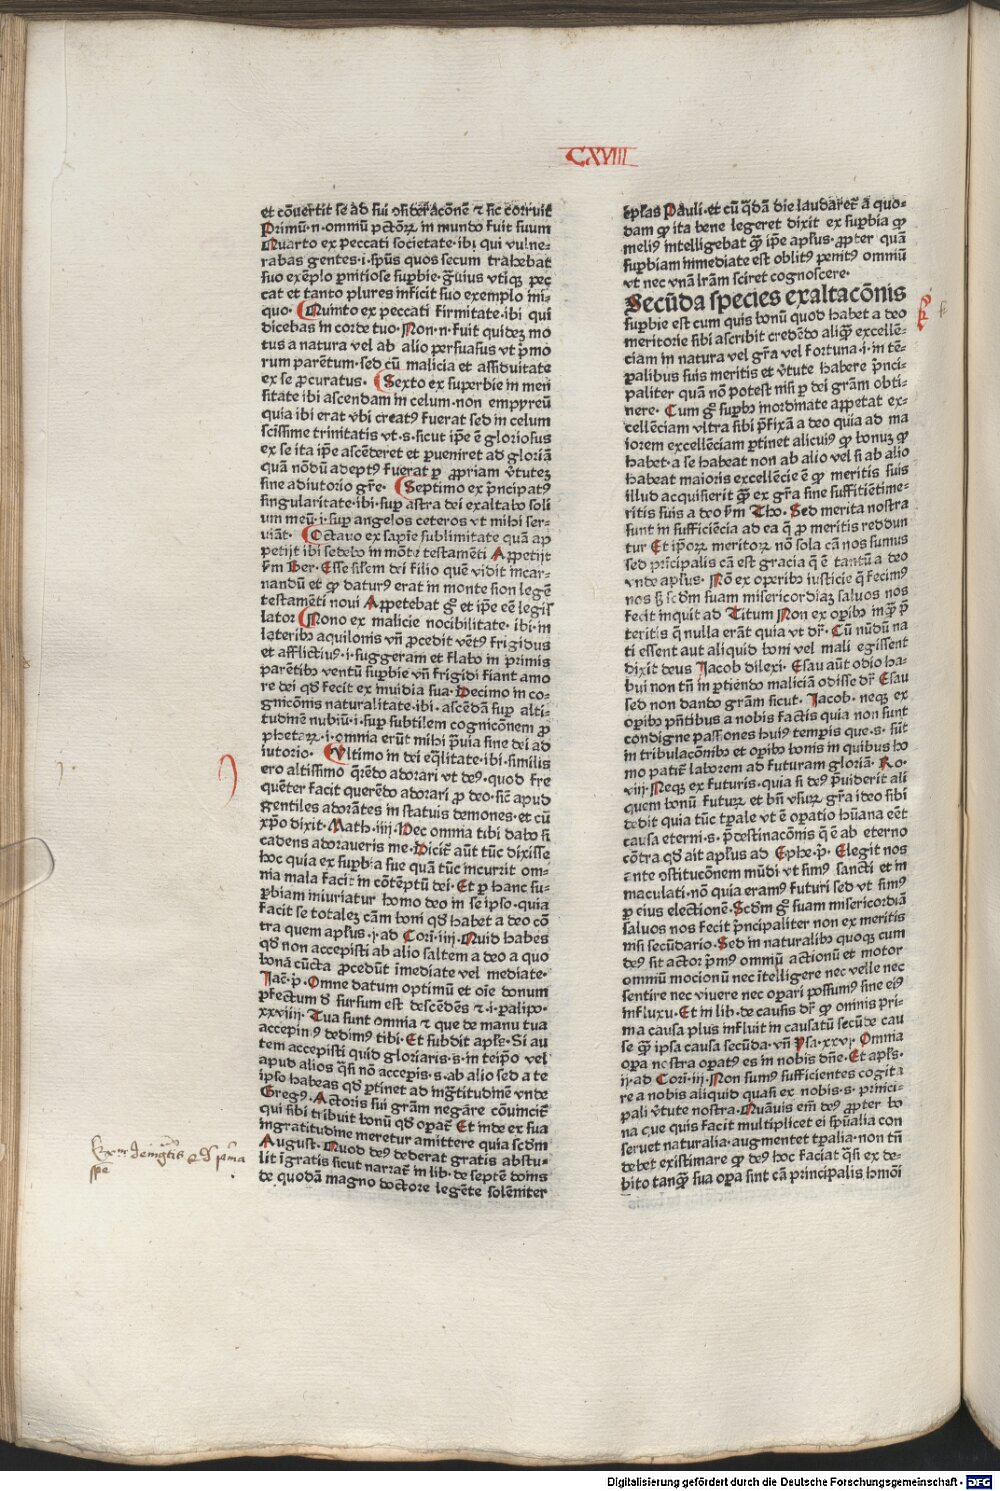 CXVIII
et cōuertit se ad sui ↄsideracōnē ⁊ sic corruit
Primū·n·omniū pctōꝝ in mundo fuit suum
Quarto ex peccati societate·ibi qui vulne-
rabas gentes·i·spūs quos secum trahebat
suo exēplo ꝑnitiose suꝑbie·g̃uius vtiqꝫ pec
cat et tanto plures inficit suo exemplo ini-
quo· Quinto ex peccati firmitate·ibi qui
dicebas in corde tuo·Non·n·fuit quidez mo
tus a natura vel ab alio persuasus vt pmo
rum parētum·sed cū malicia et assiduitate
ex se ꝓcuratus· Sexto ex superbie in men
sitate ibi ascendam in celum·non empyreū
quia ibi erat vbi creatꝰ fuerat sed in celum
scissime trinitatis vt·s·sicut ipē ē gloriosus
ex se ita ipē ascēderet et ꝑueniret ad gloriā
quā nōdū adeptꝰ fuerat ꝑ ꝓpriam v̄tutez
sine adiutorio gr̄e· Septimo ex pncipatꝰ
singularitate·ibi·suꝑ astra dei exaltabo soli
um meū·i·suꝑ angelos ceteros vt mihi ser-
viāt· Octauo ex sapīe sublimitate quā ap
petijt ibi sedebo in mōte testamēti Appetijt
ẜm Ber·Esse silem dei filio quē vidit incar-
nandū et ꝙ daturꝰ erat in monte sion legē
testamēti noui Appetebat gͦ et ipē eē legis
lator Nono ex malicie nocibilitate·ibi·in
lateribꝫ aquilonis vn̄ ꝓcedit vētꝰ frigidus
et afflictiuꝰ·i·suggeram et flabo in primis
parētibꝫ ventū suꝑbie vn̄ frigidi fiant amo
re dei qd̄ fecit ex inuidia sua·Decimo in co-
gnicōnis naturalitate·ibi·ascēdā suꝑ alti-
tudinē nubiū·i·suꝑ subtilem cognicōnem ꝓ
phetaꝝ·i·omnia erūt mihi p̄uia sine dei ad
iutorio· Vltimo in dei eq̄litate·ibi·similis
ero altissimo q̄rēdo adorari vt deꝰ·quod fre
quēter facit querēdo adorari ꝓ deo·sic̄ apud
gentiles adorātes in statuis demones·et cū
xp̄o dixit·Math·iiij·Hec omnia tibi dabo si
cadens adoraueris me·Dicit̄ aūt tūc dixisse
hoc quia ex suꝑbia sue quā tūc incurrit om-
nia mala facit in cōtēptū dei·Et ꝑ hanc su-
ꝑbiam iniuriatur homo deo in se ipso·quia
facit se totalez cām boni qd̄ habet a deo cō
tra quem aplus·j·ad Cori·iiij·Quid habes
qd̄ non accepisti ab alio saltem a deo a quo
bona cūcta ꝓcedūt imediate vel mediate·
Iac·p·Omne datum optimū et oīe donum
ꝑfectum d̄ sursum est descēdēs ⁊·i·ꝑalipo·
xxviiij·Tua sunt omnia ⁊ que de manu tua
accepimꝰ dedimꝰ tibi·Et subdit apls·Si au
tem accepisti quid gloriaris·s·in teipō vel
apud alios q̄si nō acceperis·s·ab alio sed a te
ipso habeas qd̄ ꝑtinet ad ing̃titudinē vnde
Gregꝰ·Actoris sui grām negare cōuincit̄
qui sibi tribuit bonū qd̄ oꝑat̄ Et inde ex sua
ingratitudine meretur amittere quia scdm
August·Quod deꝰ dederat gratis abstu-
lit īgratis sicut narrat̄ in lib·de septē donis
de quodā magno doctore legēte solēniter
eplas Pauli·et cū q̄dā die laudaret̄ a quo-
dam ꝙ ita bene legeret dixit ex suꝑbia ꝙ
meliꝰ intelligebat q̄ꝫ ipē aplus·ꝓpter quā
suꝑbiam inmediate est oblitꝰ penitꝰ omniū
vt nec vnā lr̄am sciret cognoscere·
Secūda species exaltacōnis
suꝑbie est cum quis bonū quod habet a deo
meritorie sibi ascribit credēdo aliq̄ꝫ excellē-
ciam in natura vel gr̄a vel fortuna·i·in tē-
ꝑalibus suis meritis et v̄tute habere p̄nci-
paliter quā nō potest nisi ꝑ dei grām obti-
nere· Cum gͦ suꝑbꝰ inordinate appetat ex-
cellēciam vltra sibi p̄fixā a deo quia ad ma
iorem excellēciam ꝑtinet alicuiꝰ ꝙ bonuz ꝙ
habet·a se habeat non ab alio vel si ab alio
habeat maioris excellēcie ē ꝙ meritis suis
illud acquisierit q̄ꝫ ex gr̄a sine suffitiētime-
ritis suis a deo ẜm Tho· Sed merita nostra
sunt in sufficiēcia ad ea q̄ ꝓ meritis reddun
tur Et ip̄oꝝ meritoꝝ nō sola cā nos sumus
sed principalis cā est gracia q̄ ē tantū a deo
vnde aplus· Nō ex oꝑibꝰ iusticie q̄ fecimꝰ
nos sꝫ scdm suam misericordiaz saluos nos
fecit inquit ad Titum Non ex oꝑibꝫ inq̄ꝫ p̄
teritis q̄ nulla erāt quia vt dr̄· Cū nūdū na
ti essent aut aliquid boni vel mali egissent
dixit deus Iacob dilexi· Esau aūt odio ha-
bui non tn̄ in ꝑtiendo maliciā odisse dr̄ Esau
sed non dando grām sicut· Iacob· neqꝫ ex
oꝑibꝫ p̄ntibus a nobis factis quia non sunt
condigne passiones huiꝰ temꝑis que·s·sūt
in tribulacōnibꝫ et oꝑibꝫ bonis in quibus ho
mo patit̄ laborem ad futuram gloriā· Ro·
viij·Neqꝫ ex futuris·quia si deꝰ p̄uiderit ali
quem bonū futuꝝ et bn̄ vsuꝝ gr̄a ideo sibi
dedit quia tūc tꝑale vt ē oꝑatio hūana eēt
causa eterni·s·p̄destinacōnis q̄ ē ab eterno
cōtra qd̄ ait aplus ad Ephe·p· Elegit nos
ante ↄstitucōnem mūdi vt simꝰ sancti et in
maculati·nō quia eramꝰ futuri sed vt simꝰ
ꝑ eius electionē·Scdm gͦ suam misericordiā
saluos nos fecit p̄ncipaliter non ex meritis
nisi secūdario·Sed in naturalibꝫ quoqꝫ cum
deꝰ sit actor p̄mꝰ omniū actionū et motor
omniū mocionū nec ītelligere nec velle nec
sentire nec viuere nec oꝑari possumꝰ sine eiꝰ
influxu·Et in lib·de causis dr̄ ꝙ omnis pri-
ma causa plus influit in causatū secūde cau
se q̄ꝫ ipsa causa secūda·vn̄ Psa·xxvj·Omnia
oꝑa nostra oꝑatꝰ es in nobis dn̄e·Et apls·
ij·ad Cori·iij·Non sumꝰ sufficientes cogita
re a nobis aliquid quasi ex nobis·s·princi-
pali v̄tute nostra·Quāuis em̄ deꝰ ꝓpter bo
na que quis facit multiplicet ei sp̄ualia con
seruet naturalia·augmentet tꝑalia·non tn̄
debet existimare ꝙ deꝰ hoc faciat q̄si ex de-
bito tanq̄ꝫ sua oꝑa sint cā principalis hmōi